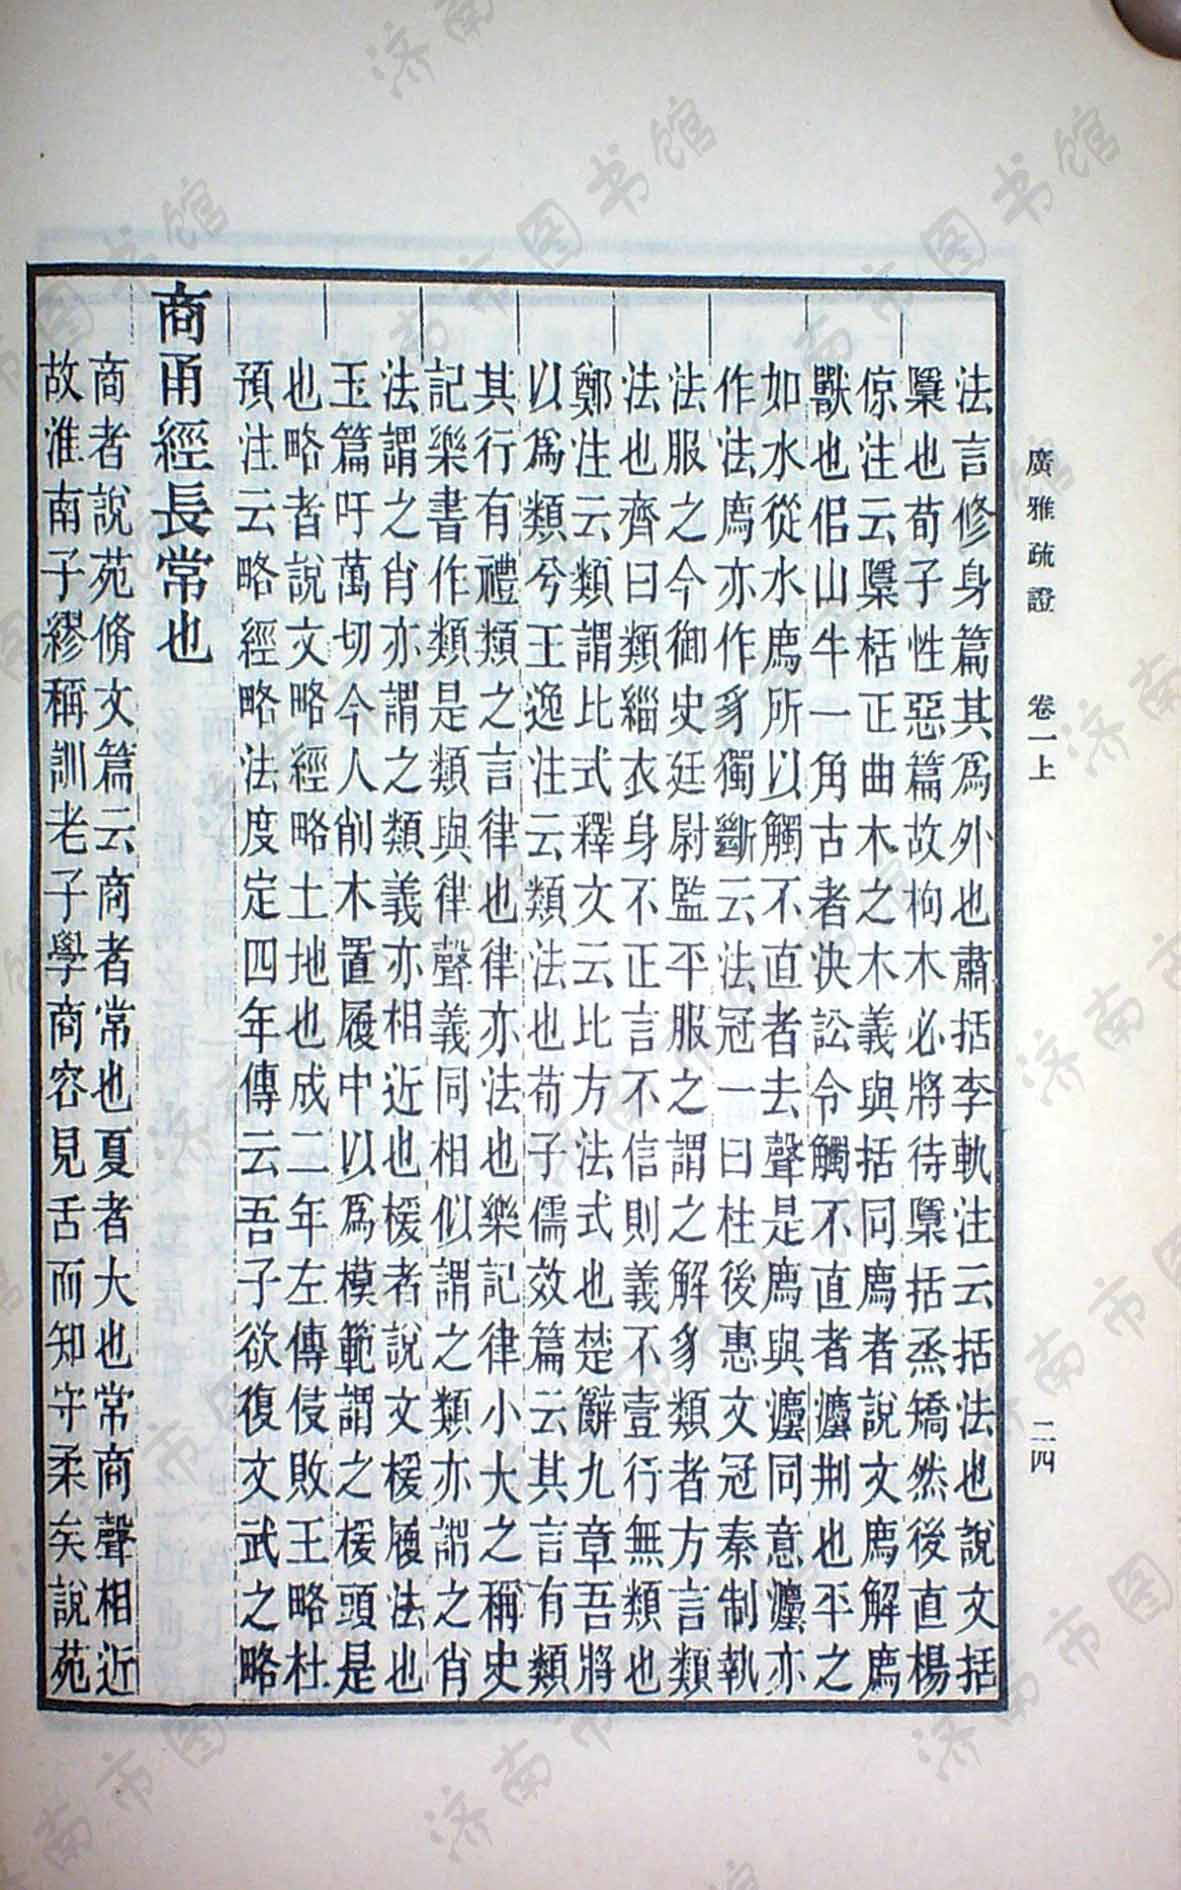 廣雅疏證　卷一上　二四
法言修身篇其爲外也肅括李軌注云括法也說文括
檃也荀子性惡篇故枸木必將待檃括烝矯然後直楊
倞注云檃栝正曲木之木義與括同廌者說文廌解廌
獸也佀山牛一角古者決訟令觸不直者灋荆也平之
如水從水廌所以觸不直者去聲是廌與灋同意灋亦
作法廌亦作豸獨斷云法冠一曰柱後惠文冠秦制執
法服之今御史廷尉監平服之謂之解豸類者方言類
法也齊曰類緇衣身不正言不信則義不壹行無類也
鄭注云類謂比式釋文云比方法式也楚辭九章吾將
以爲類兮王逸注云類法也荀子儒效篇云其言有類
其行有禮類之言律也律亦法也樂記律小大之稱史
記樂書作類是類與律聲義同相似謂之類亦謂之肖
法謂之肖亦謂之類義亦相近也楥者說文楥履法也
玉篇吁萬切今人削木置履中以爲模範謂之楥頭是
也略者說文略經略土地也成二年左傳侵敗王略杜
預注云略經略法度定四年傳云吾子欲復文武之略
商甬經長常也
商者說苑脩文篇云商者常也夏者大也常商聲相近
故淮南子繆稱訓老子學商容見舌而知守柔矣說苑
济南市图书馆